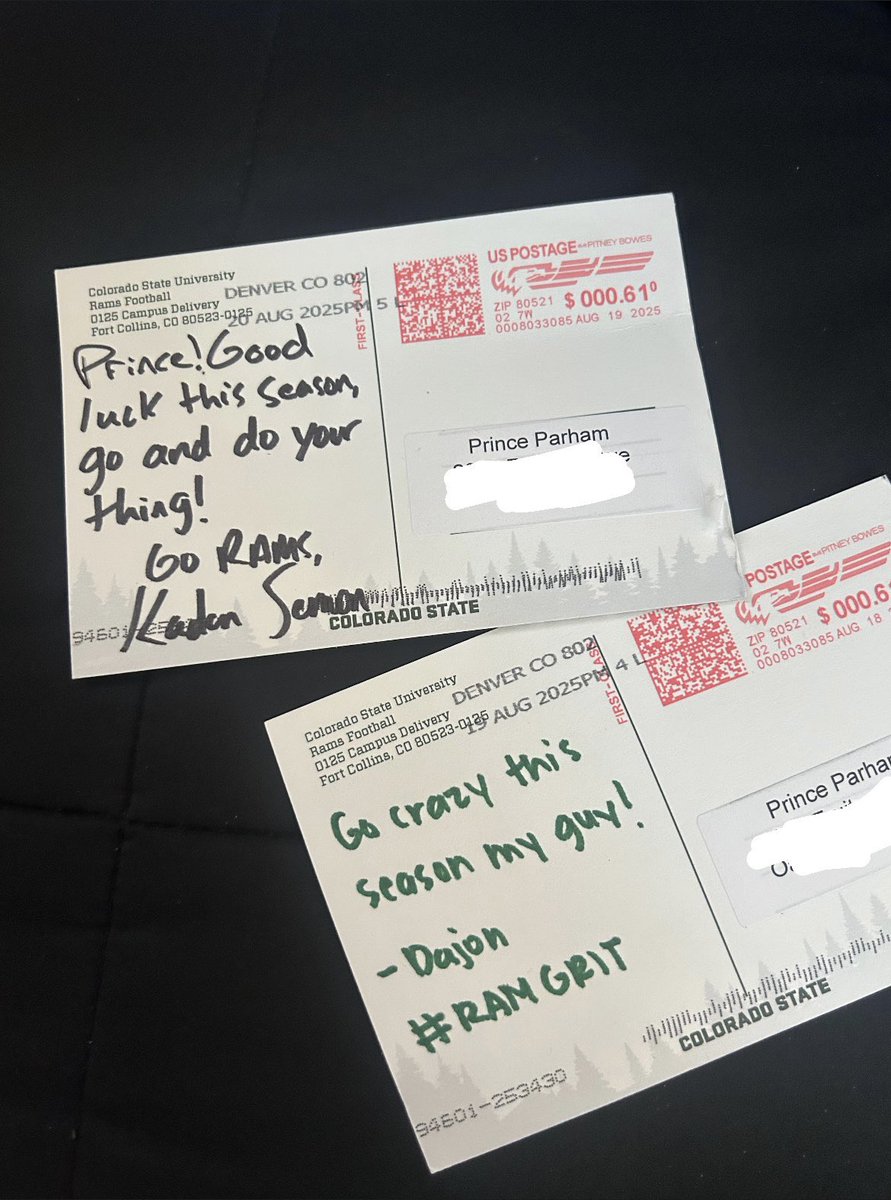 Colorado State University
Rams Football
0125 Campus Delivery
Fort Collins, CO 80523-0125
DENVER CO 802
20 AUG 2025PM 5 L
FIRST-CLASS
US POSTAGE PITNEY BOWES
ZIP 80521 $ 000.61⁰
02 7W
0008033085 AUG 19 2025
Prince! Good
luck this season,
go and do your
thing!
GO RAMS,
Kaden
Prince Parham
COLORADO STATE
94601
Colorado State University
Rams Football
0125 Campus Delivery
Fort Collins, CO 80523-0125
DENVER CO 802
19 AUG 2025PM 4 L
FIRST-CLASS
POSTAGE PITNEY BOWES
ZIP 80521 $ 000.6
02 7W
0008033085 AUG 18
Go crazy this
season my guy!
- Dajon
#RAMGRIT
Prince Parha
COLORADO STATE
94601-253430